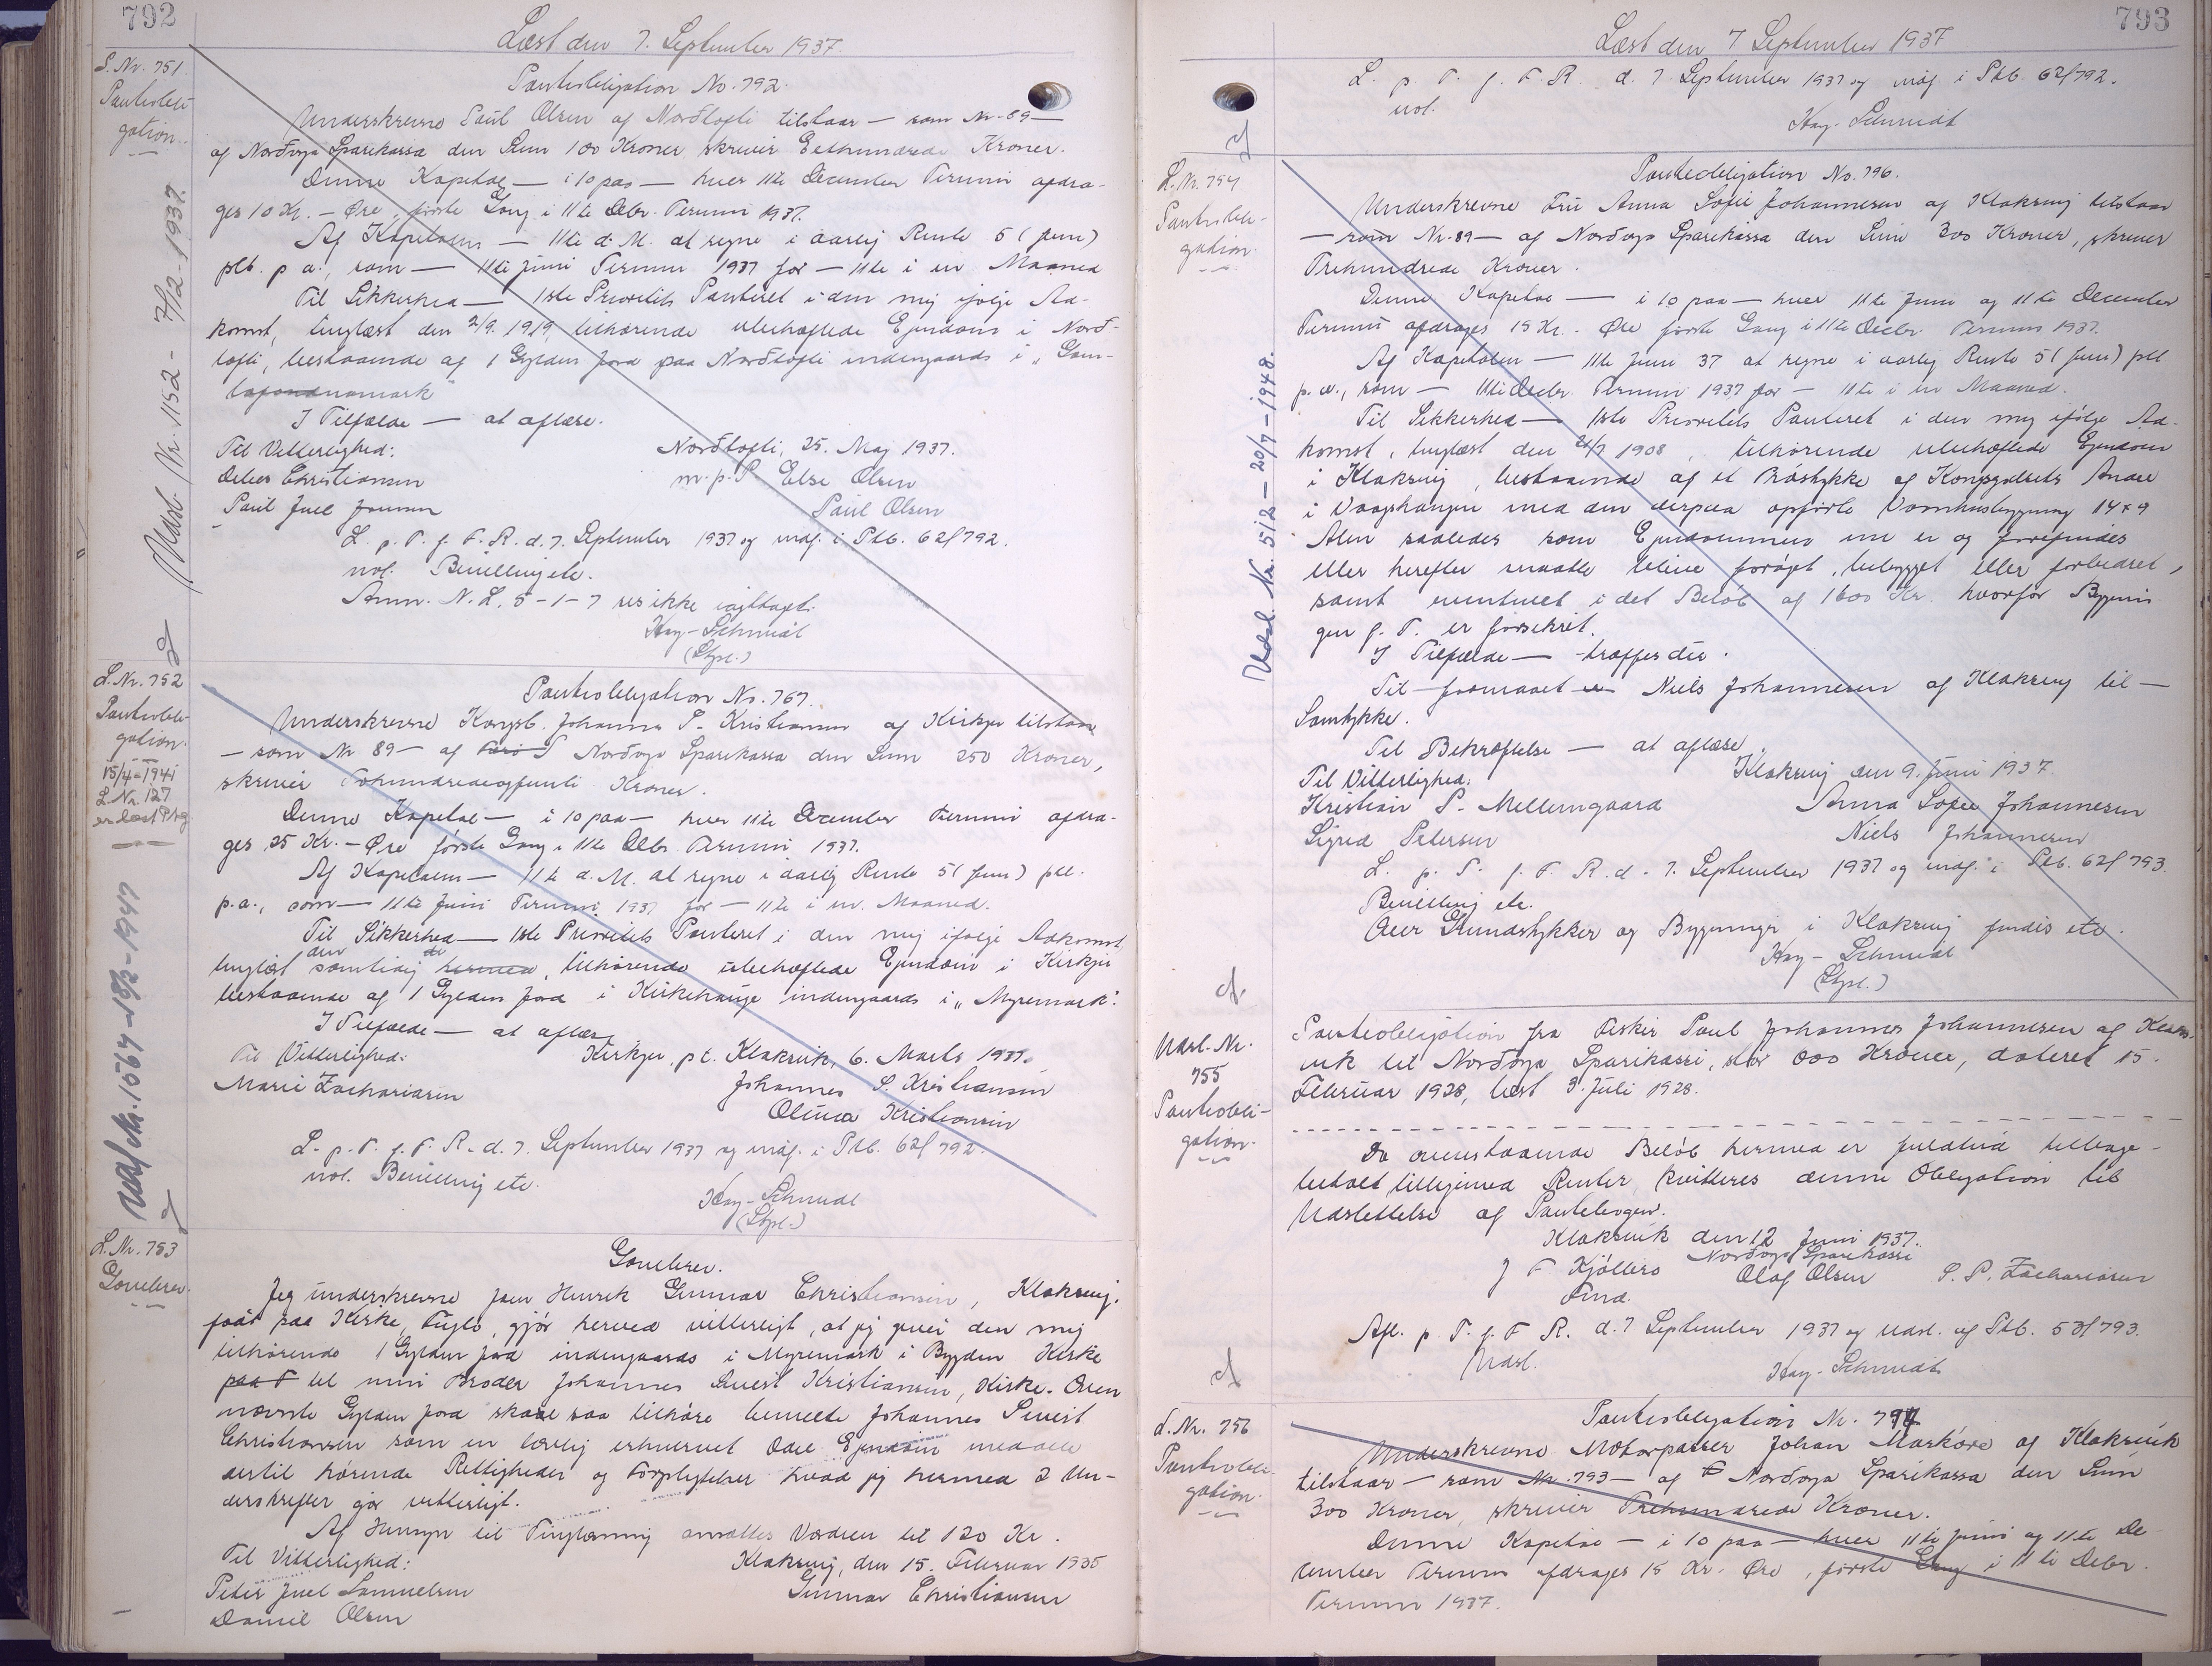 792
Læst den 7. September 1937.
L. Nr. 751.
Pantobli-
gation.
Pantobligation No. 792.
Underskrevne Paul Olsen af Norðtofti tilstaar — som Nr. 89 —
af Norðoya Sparikassa den Sum 100 Kroner skriver Eethundrede Kroner.
Denne Kapital — i 10 paa — hver 11te December Termin afdra-
ges 10 Kr. — Øre, første Gang i 11te Decbr. Termin 1937.
Af Kapitalen — 11te d. M. at regne i aarlig Rente 5 (fem)
pCt. p. a., som — 11te Juni Termin 1937 for — 11te i en Maaned
Til Sikkerhed — 1ste Prioritets Panteret i den mig ifølge Ad-
komst, tinglæst den 2/9. 1919, tilhørende ubehæftede Ejendom i Norð-
tofti, bestaaende af 1 Gylden Jord paa Norðtofti indengaards i
I Tilfælde — at aflæse.
Til Vitterlighed:
Norðtofti, 25. Maj 1937.
Christiansen
m. p. P. Else Olsen
Paul Juel Joensen
Paul Olsen
L. p. T. f. F. R. d. 7. September 1937 og indf. i Ptb. 62f 792.
not. Bevilling etc.
Anm. N. L. 5-1-7 ses ikke iagttaget.
Hay-Schmidt
(Stpl.)
Udsl. Nr. 1152 - 7/12-1937.
L. Nr. 752
Pantobli-
gation.
15/4-1941
L. Nr. 127
er læst Ptg
Pantobligation No. 767.
Underskrevne Kongsb. Johannes S. Kristiansen af Kirkju tilstaar
— som Nr 89 — af Norðoya Sparikassa den Sum 250 Kroner,
skriver Tohundredeogfemti Kroner.
Denne Kapital — i 10 paa — hver 11te December Termin afdra-
ges 25 Kr. — Øre første Gang i 11te Dcbr. Termin 1937.
Af Kapitalen — 11te d. M. at regne i aarlig Rente 5 (fem) pCt.
p. a., som — 11te Juni Termin 1937 for — 11te i en Maaned.
Til Sikkerhed — 1ste Prioritets Panteret i den mig ifølge Adkomst
tinglæst samtidig hermed, tilhørende ubehæftede Ejendom i Kirkju
bestaaende af 1 Gylden Jord i Kirkehauge indengaards i „Myremark".
I Tilfælde — at aflæse
Til Vitterlighed:
Kirkju, pt. Klaksvik, 6. Marts 1937.
Marie Zachariasen
Johannes S. Kristiansen
Olina Kristiansen
L. p. T. f. F. R. d. 7. September 1937 og indf. i Ptb. 62f 792.
not. Bevilling etc.
Hay-Schmidt
(Stpl.)
L. Nr. 753
Gavebrev.
Gavebrev.
Jeg underskrevne Jens Henrik Gunnar Christiansen, Klaksvig,
født paa Kirke, Fuglø, gjør herved vitterligt, at jeg giver den mig
tilhørende 1 Gylden Jord indengaards i Myremark i Bygden Kirke
paa F til min Broder Johannes Sivert Kristiansen, Kirke. Oven
nævnte Gylden Jord skal saa tilhøre bemeldte Johannes Sivert
Christiansen som en lovlig erhvervet Odel Ejendom med alle
dertil hørende Rettigheder og Forpligtelser hvad jeg hermed 2 Un-
derskrifter gør vitterligt.
Af Hensyn til Tinglæsning ansættes Værdien til 120 Kr.
Til Vitterlighed:
Klaksvig, den 15. Februar 1935
Peter Juel Samuelsen
Gunnar Christiansen
Daniel Olsen
793
Læst den 7 September 1937
L. p. T. f. F. R. d. 7. September 1937 og indf. i Ptb. 62f 792.
not.
Hay-Schmidt
L. Nr. 754
Pantobli-
gation.
Udsl. Nr. 512 - 20/7-1948.
Pantobligation No. 796.
Underskrevne Fru Anna Sofie Johannesen af Klaksvig tilstaar
— som Nr. 89 — af Norðoya Sparikassa den Sum 300 Kroner, skriver
Trehundrede Kroner.
Denne Kapital — i 10 paa — hver 11te Juni og 11te December
Termin afdrages 15 Kr. - Øre første Gang i 11te Decbr. Termin 1937.
Af Kapitalen — 11te Juni 37 at regne i aarlig Rente 5 (fem) pCt
p. a., som — 11te Decbr Termin 1937 for — 11te i en Maaned.
Til Sikkerhed — 1ste Prioritets Panteret i den mig ifølge Ad-
komst, tinglæst den 21/7 1908, tilhørende ubehæftede Ejendom
i Klaksvig, bestaaende af et Trástykke af Kongsgodsets Andel
i Vaagshaugen med den derpaa opførte Vaanhusbygning 14 x 9
Alen saaledes som Ejendommen nu er og forefindes
eller herefter maatte blive forøget, bebygget eller forbedret,
samt eventuelt i det Beløb af 1600 Kr. hvorfor Bygnin
gen f. T. er forsikret.
I Tilfælde — træffes der.
Til — formaaet Niels Johannesen af Klaksvig til —
Samtykke.
Til Bekræftelse — at aflæse.
Til Vitterlighed:
Klaksvig den 9. Juni 1937.
Kristian S. Mellemgaard
Anna Sofie Johannesen
Sigrid Petersen
Niels Johannesen
L. p. T. f. F. R. d. 7. September 1937 og indf. i Ptb. 62f 793.
Bevilling etc.
Over Grundstykker og Bygninger i Klaksvig findes etc.
Hay-Schmidt
(Stpl.)
Udsl. Nr.
755
Pantobli-
gation.
Pantobligation fra Fisker Paul Johannes Johannesen af Klaks-
vik til Norðoya Sparikassi, stor 800 Kroner, dateret 15.
Februar 1928, læst 3. Juli 1928.
Da ovenstaaende Beløb hermed er fuldtud tilbage-
betalt tilligemed Renter, kvitteres denne Obligation til
Udslettelse af Pantebogen.
Klaksvik den 12 Juni 1937.
Norðoya Sparikassi
J F Kjølbro Olaf Olsen S. P. Zachariasen
Fmd.
Afl. p. T. f. F R. d. 7 September 1937 og Udsl. af Ptb. 53f 793.
Udsl.
Hay-Schmidt
L. Nr. 756
Pantobli-
gation.
Pantobligation Nr. 797
Underskrevne Motorpasser Johan Markøre af Klaksvik
tilstaar — som Nr. 793 — af Norðoya Sparikassa den Sum
300 Kroner, skriver Trehundrede Kroner.
Denne Kapital — i 10 paa — hver 11te Juni og 11te De
cember Termin afdrages 15 Kr. Øre, første Gang i 11te Decbr.
Termin 1937.